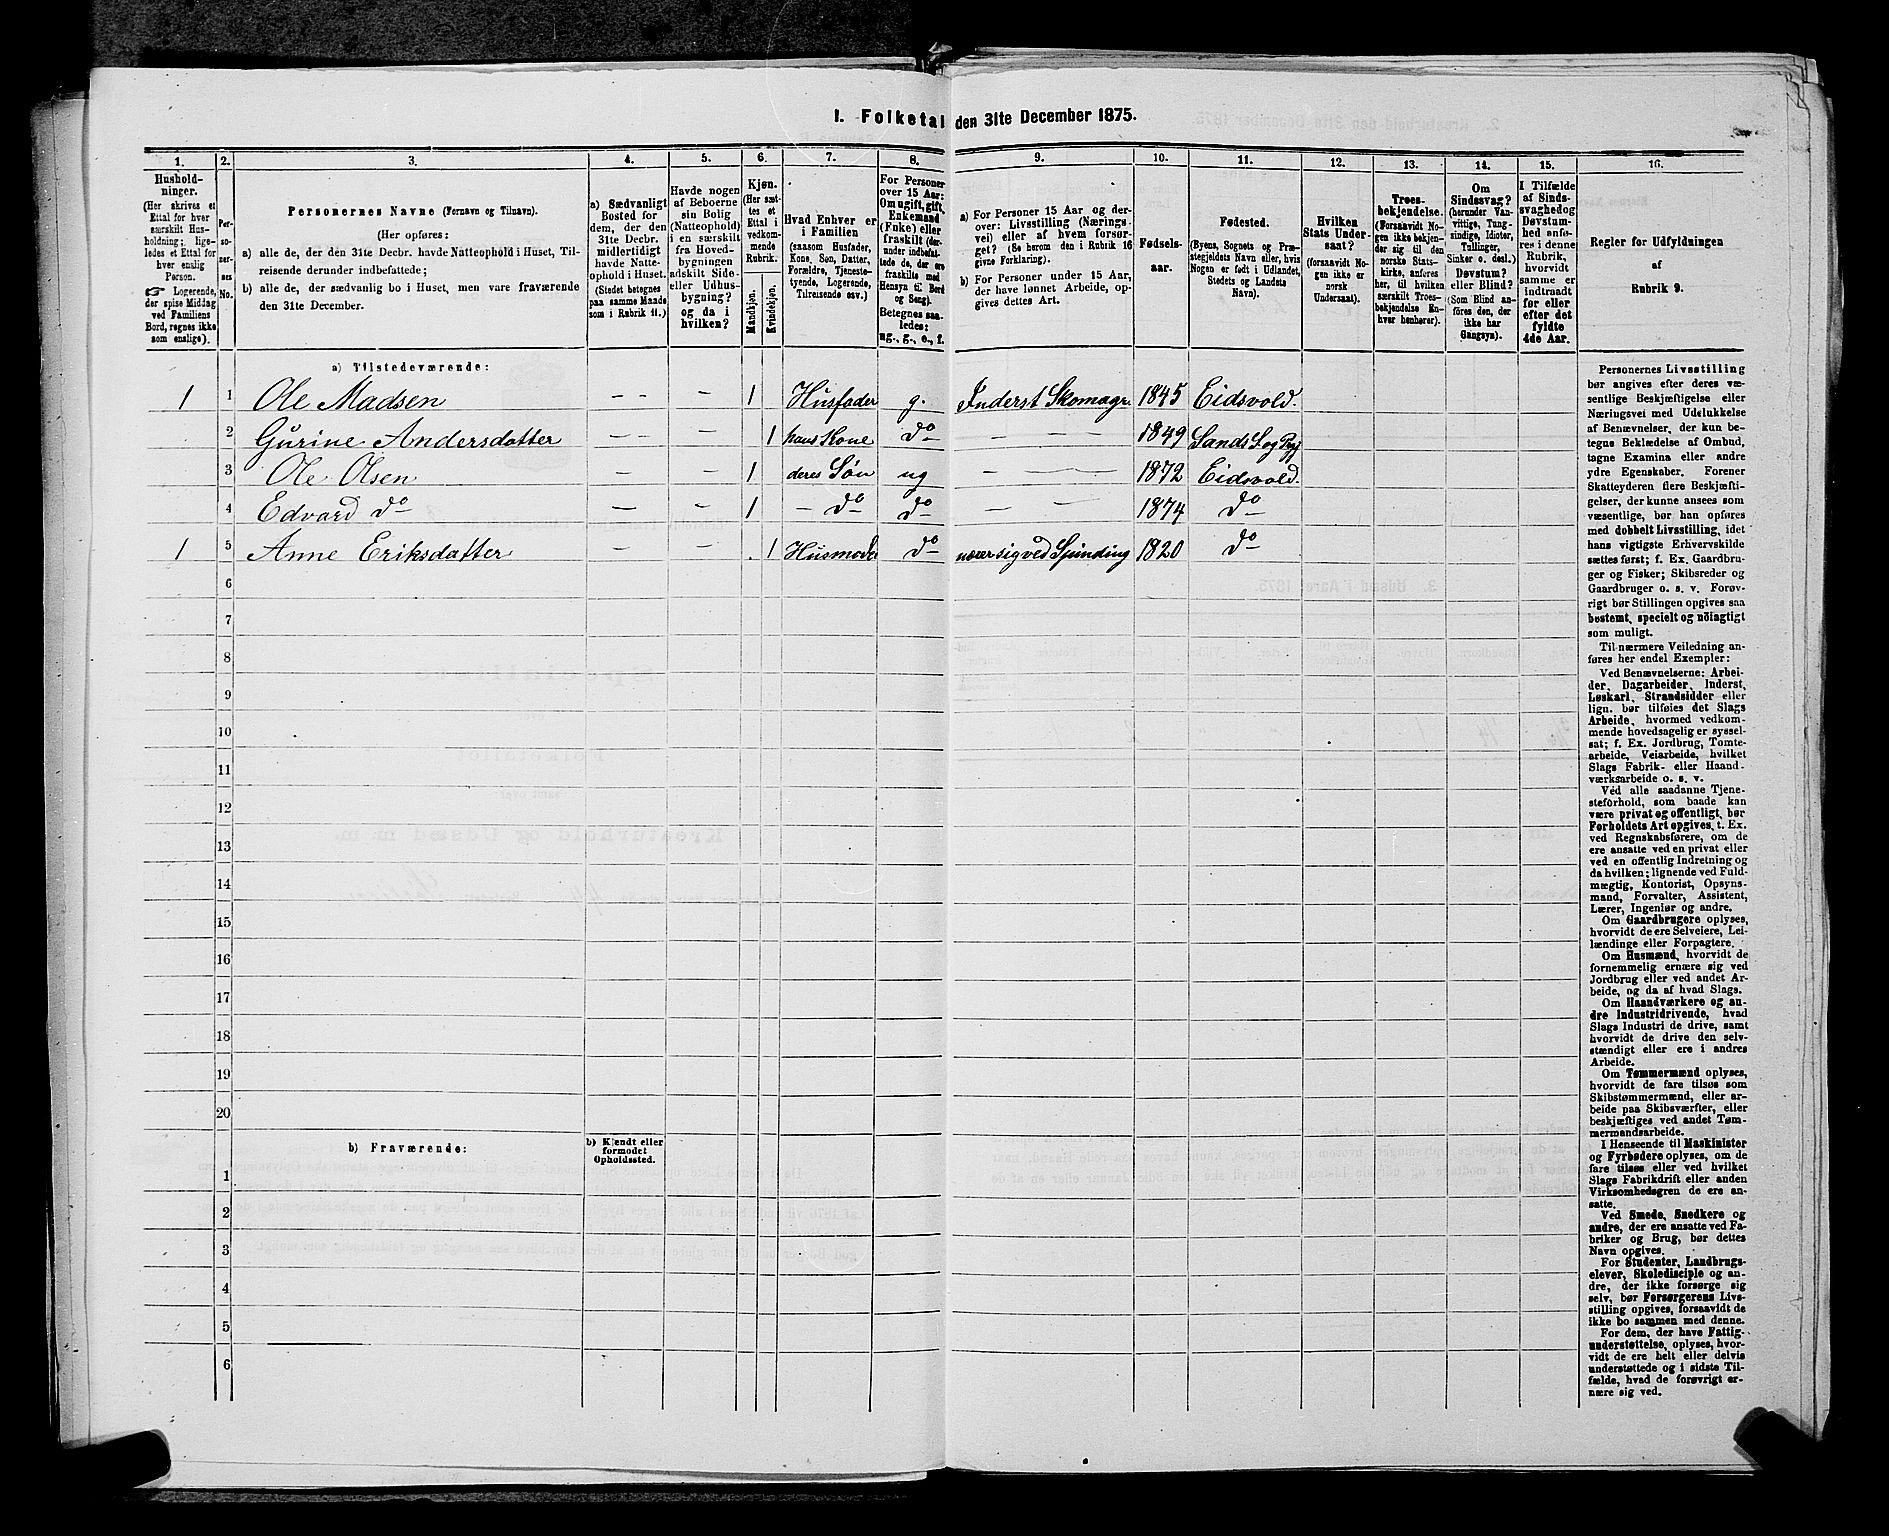 1. Folketal den 31te December 1875.
1.
2.
3.
4.
5.
6.
7.
8.
9.
10.
11.
12.
13.
14.
15.
16.
Hushold-
ninger.
(Her skrives et
Ettal for hver
særskilt Hus-
holdning; lige-
ledes et Ettal for
hver enslig
Person.
☞ Logerende,
der spise Middag
ved Familiens
Bord, regnes ikke
som enslige).
Per-
so-
ner-
nes
No.
Personernes Navne (Fornavn og Tilnavn).
(Her opføres:
a) alle de, der den 31te Decbr. havde Natteophold i Huset, Til-
reisende derunder indbefattede;
b) alle de, der sædvanlig bo i Huset, men vare fraværende
den 31te December.
a) Sædvanligt
Bosted for
dem, der den
31te Decbr.
midlertidigt
havde Natte-
ophold i Huset.
(Stedet betegnes
paa samme Maade
som i Rubrik 11.)
Havde nogen
af Beboerne
sin Bolig
(Natteophold)
i en særskilt
fra Hoved-
bygningen
adskilt Side-
eller Udhus-
bygning?
og da i
hvilken?
Kjøn.
(Her sæt-
tes et
Ettal i
vedkom-
mende
Rubrik.
Mandkjøn.
Kvindekjøn.
Hvad Enhver er
i Familien
(saasom Husfader,
Kone, Søn, Datter,
Forældre, Tjeneste-
tyende, Logerende,
Tilreisende osv.)
For Personer
over 15 Aar:
Om ugift, gift,
Enkemand
(Enke) eller
fraskilt (der-
under indbefat-
tede de, der ere
fraskilte med
Hensyn til Bord
og Seng).
Betegnes saa-
ledes:
ug., g., e., f.
a) For Personer 15 Aar og der-
over: Livsstilling (Nærings-
vei) eller af hvem forsør-
get? (Se herom den i Rubrik 16
givne Forklaring).
b) For Personer under 15 Aar,
der have lønnet Arbeide, op-
gives dettes Art.
Fødsels-
aar.
Fødested.
(Byens, Sognets og Præ-
stegjeldets Navn eller, hvis
Nogen er født i Udlandet,
Stedets og Landets
Navn).
Hvilken
Stats Under-
saat?
(forsaavidt No-
gen ikke er
norsk
Undersaat).
Troes-
bekjendelse.
(Forsaavidt No-
gen ikke bekjen-
der sig til den
norske Stats-
kirke, anføres
her, til hvilken
særskilt Troes-
bekjendelse En-
hver henhører).
Om
Sindssvag?
(herunder Van-
vittige, Tung-
sindige, Idioter,
Tullinger,
Sinker o. desl.)
Døvstum?
eller Blind?
(Som Blind an-
føres den, der
ikke har
Gangsyn).
I Tilfælde
af Sinds-
svaghed og
Døvstum-
hed anfø-
res i denne
Rubrik,
hvorvidt
samme er
indtraadt
før eller
efter det
fyldte
4de Aar.
Regler for Udfyldningen
af
Rubrik 9.
a) Tilstedeværende:
1 1 Ole Madsen – – – 1 Husfader g. Inderst Skomagr. 1845 Eidsvold.
2 Gurine Andersdatter – – – 1 hans Kone do – – 1849 Sands S. og Pgj
3 Ole Olsen – – 1 deres Søn ug – – 1872 Eidsvold.
4 Edvard do – – 1 – do do – – 1874 do
1 5 Anne Eriksdatter – – 1 Husmoder do nærer sig ved Spinding 1820 do
6
7
8
9
10
11
12
13
14
15
16
17
18
19
20
b) Fraværende:
b) Kjendt eller
formodet
Opholdssted.
1
2
3
4
5
6
Personernes Livsstilling
bør angives efter deres væ-
sentlige Beskjæftigelse eller
Næringsvei med Udelukkelse
af Benævnelser, der kun be-
tegne Beklædelse af Ombud,
tagne Examina eller andre
ydre Egenskaber. Forener
Skatteyderen flere Beskjæfti-
gelser, der kunne ansees som
væsentlige, bør han opføres
med dobbelt Livsstilling, idet
hans vigtigste Erhvervskilde
sættes først; f. Ex. Gaardbru-
ger og Fisker; Skibsreder og
Gaardbruger o. s. v. Forøv-
rigt bør Stillingen opgives saa
bestemt, specielt og nøiagtigt
som muligt.
Til nærmere Veiledning an-
føres her endel Exempler:
Ved Benævnelserne: Arbei-
der, Dagarbeider, Inderst,
Løskarl, Strandsidder eller
lign. bør tilføies det Slags
Arbeide, hvormed vedkom-
mende hovedsagelig er syssel-
sat; f. Ex. Jordbrug, Tomte-
arbeide, Veiarbeide, hvilket
Slags Fabrik- eller Haand-
værksarbeide o. s. v.
Ved alle saadanne Tjene-
steforhold, som baade kan
være privat og offentligt, bør
Forholdets Art opgives, t. Ex.
ved Regnskabsførere, om de
ere ansatte ved en privat eller
ved en offentlig Indretning og
da hvilken; lignende ved Fuld-
mægtig, Kontorist, Opsyns-
mand, Forvalter, Assistent,
Lærer, Ingeniør og andre.
Om Gaardbrugere oplyses,
hvorvidt de ere Selveiere, Lei-
lændinge eller Forpagtere.
Om Husmænd, hvorvidt de
fornemmelig ernære sig ved
Jordbrug eller ved andet Ar-
beide, og da af hvad Slags.
Om Haandværkere og an-
dre Industridrivende, hvad
Slags Industri de drive, samt
hvorvidt de drive den selv-
stændigt eller ere i andres
Arbeide.
Om Tømmermænd oplyses,
hvorvidt de fare tilsøs som
Skibstømmermænd, eller ar-
beide paa Skibsværfter, eller
beskjæftiges ved andet Tøm-
mermandsarbeide.
I Henseende til Maskinister
og Fyrbødere oplyses, om de
fare tilsøs eller ved hvilket
Slags Fabrikdrift eller anden
Virksomhedsgren de ere an-
satte.
Ved Smede, Snedkere og
andre, der ere ansatte ved Fa-
briker og Brug, bør dettes
Navn opgives.
For Studenter, Landbrugs-
elever, Skoledisciple og an-
dre, der ikke forsørge sig
selv, bør Forsørgerens Livs-
stilling opgives, forsaavidt de
ikke bo sammen med denne.
For dem, der have Fattig-
understøttelse, oplyses, hvor-
vidt de ere helt eller delvis
understøttede og i sidste Til-
fælde, hvad de forøvrigt er-
nære sig ved.